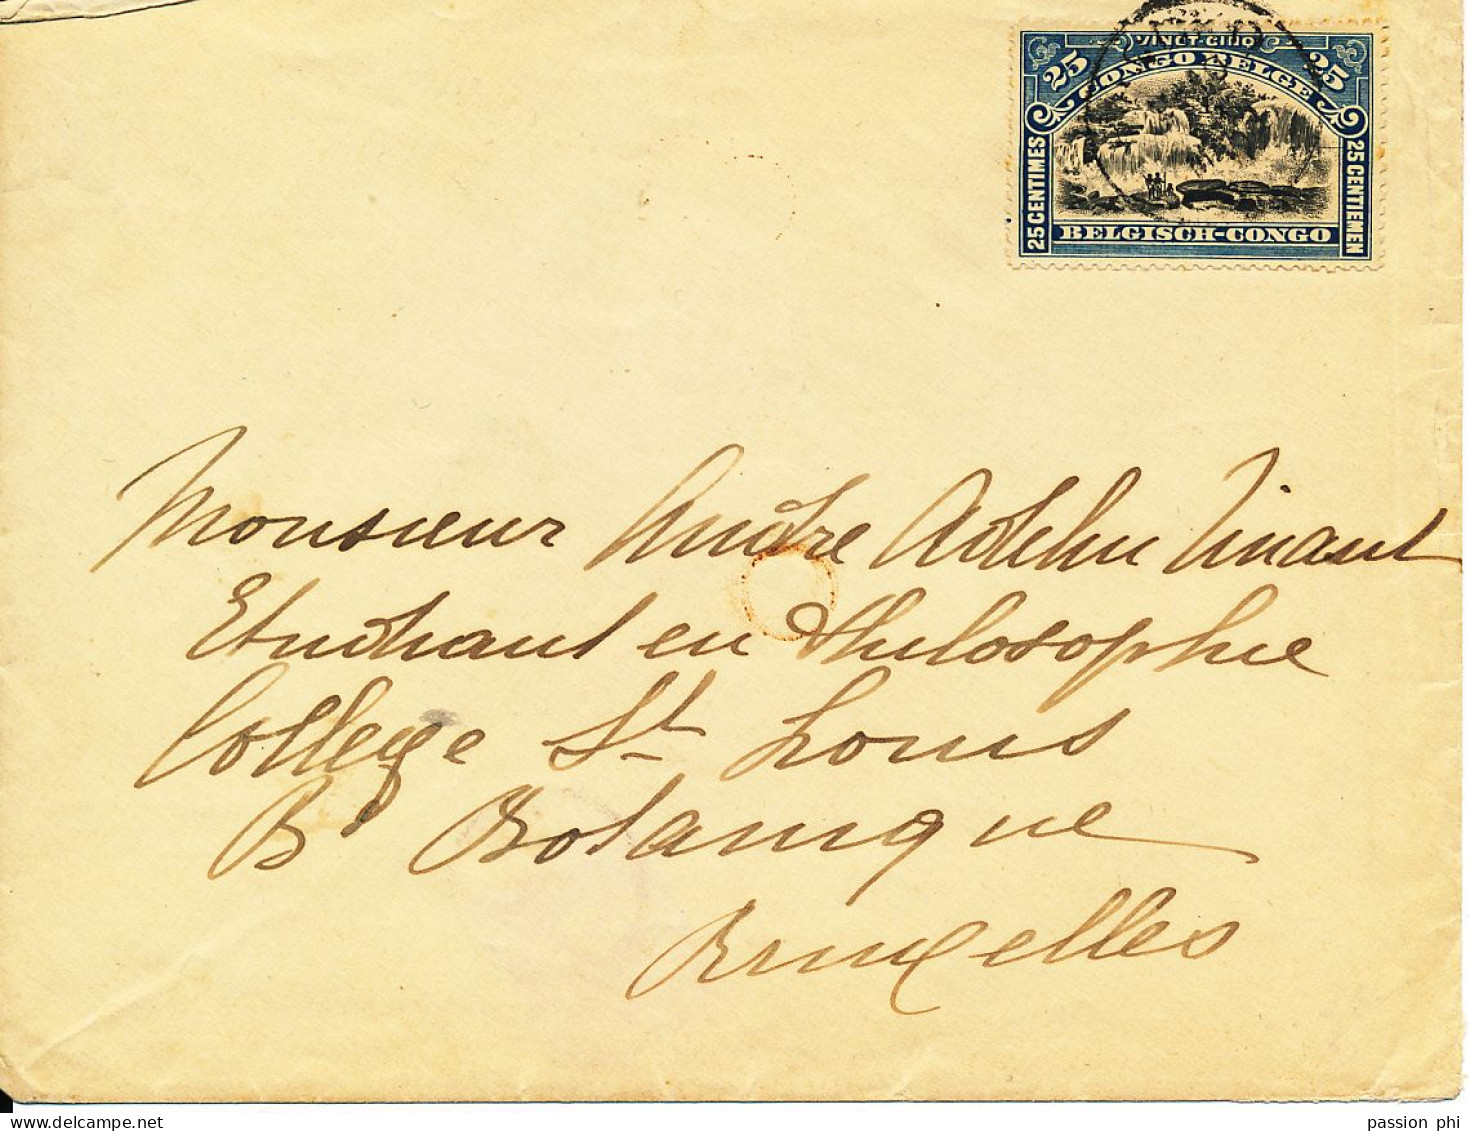 VINGT-CINQ
25 CONGO BELGE 25
25 CENTIMES
25 CENTIEMEN
BELGISCH-CONGO
Monsieur André Adelin
Etudiant en Philosophie
College St Louis
Bd Botanique
Bruxelles
passion phi
www.delcampe.net